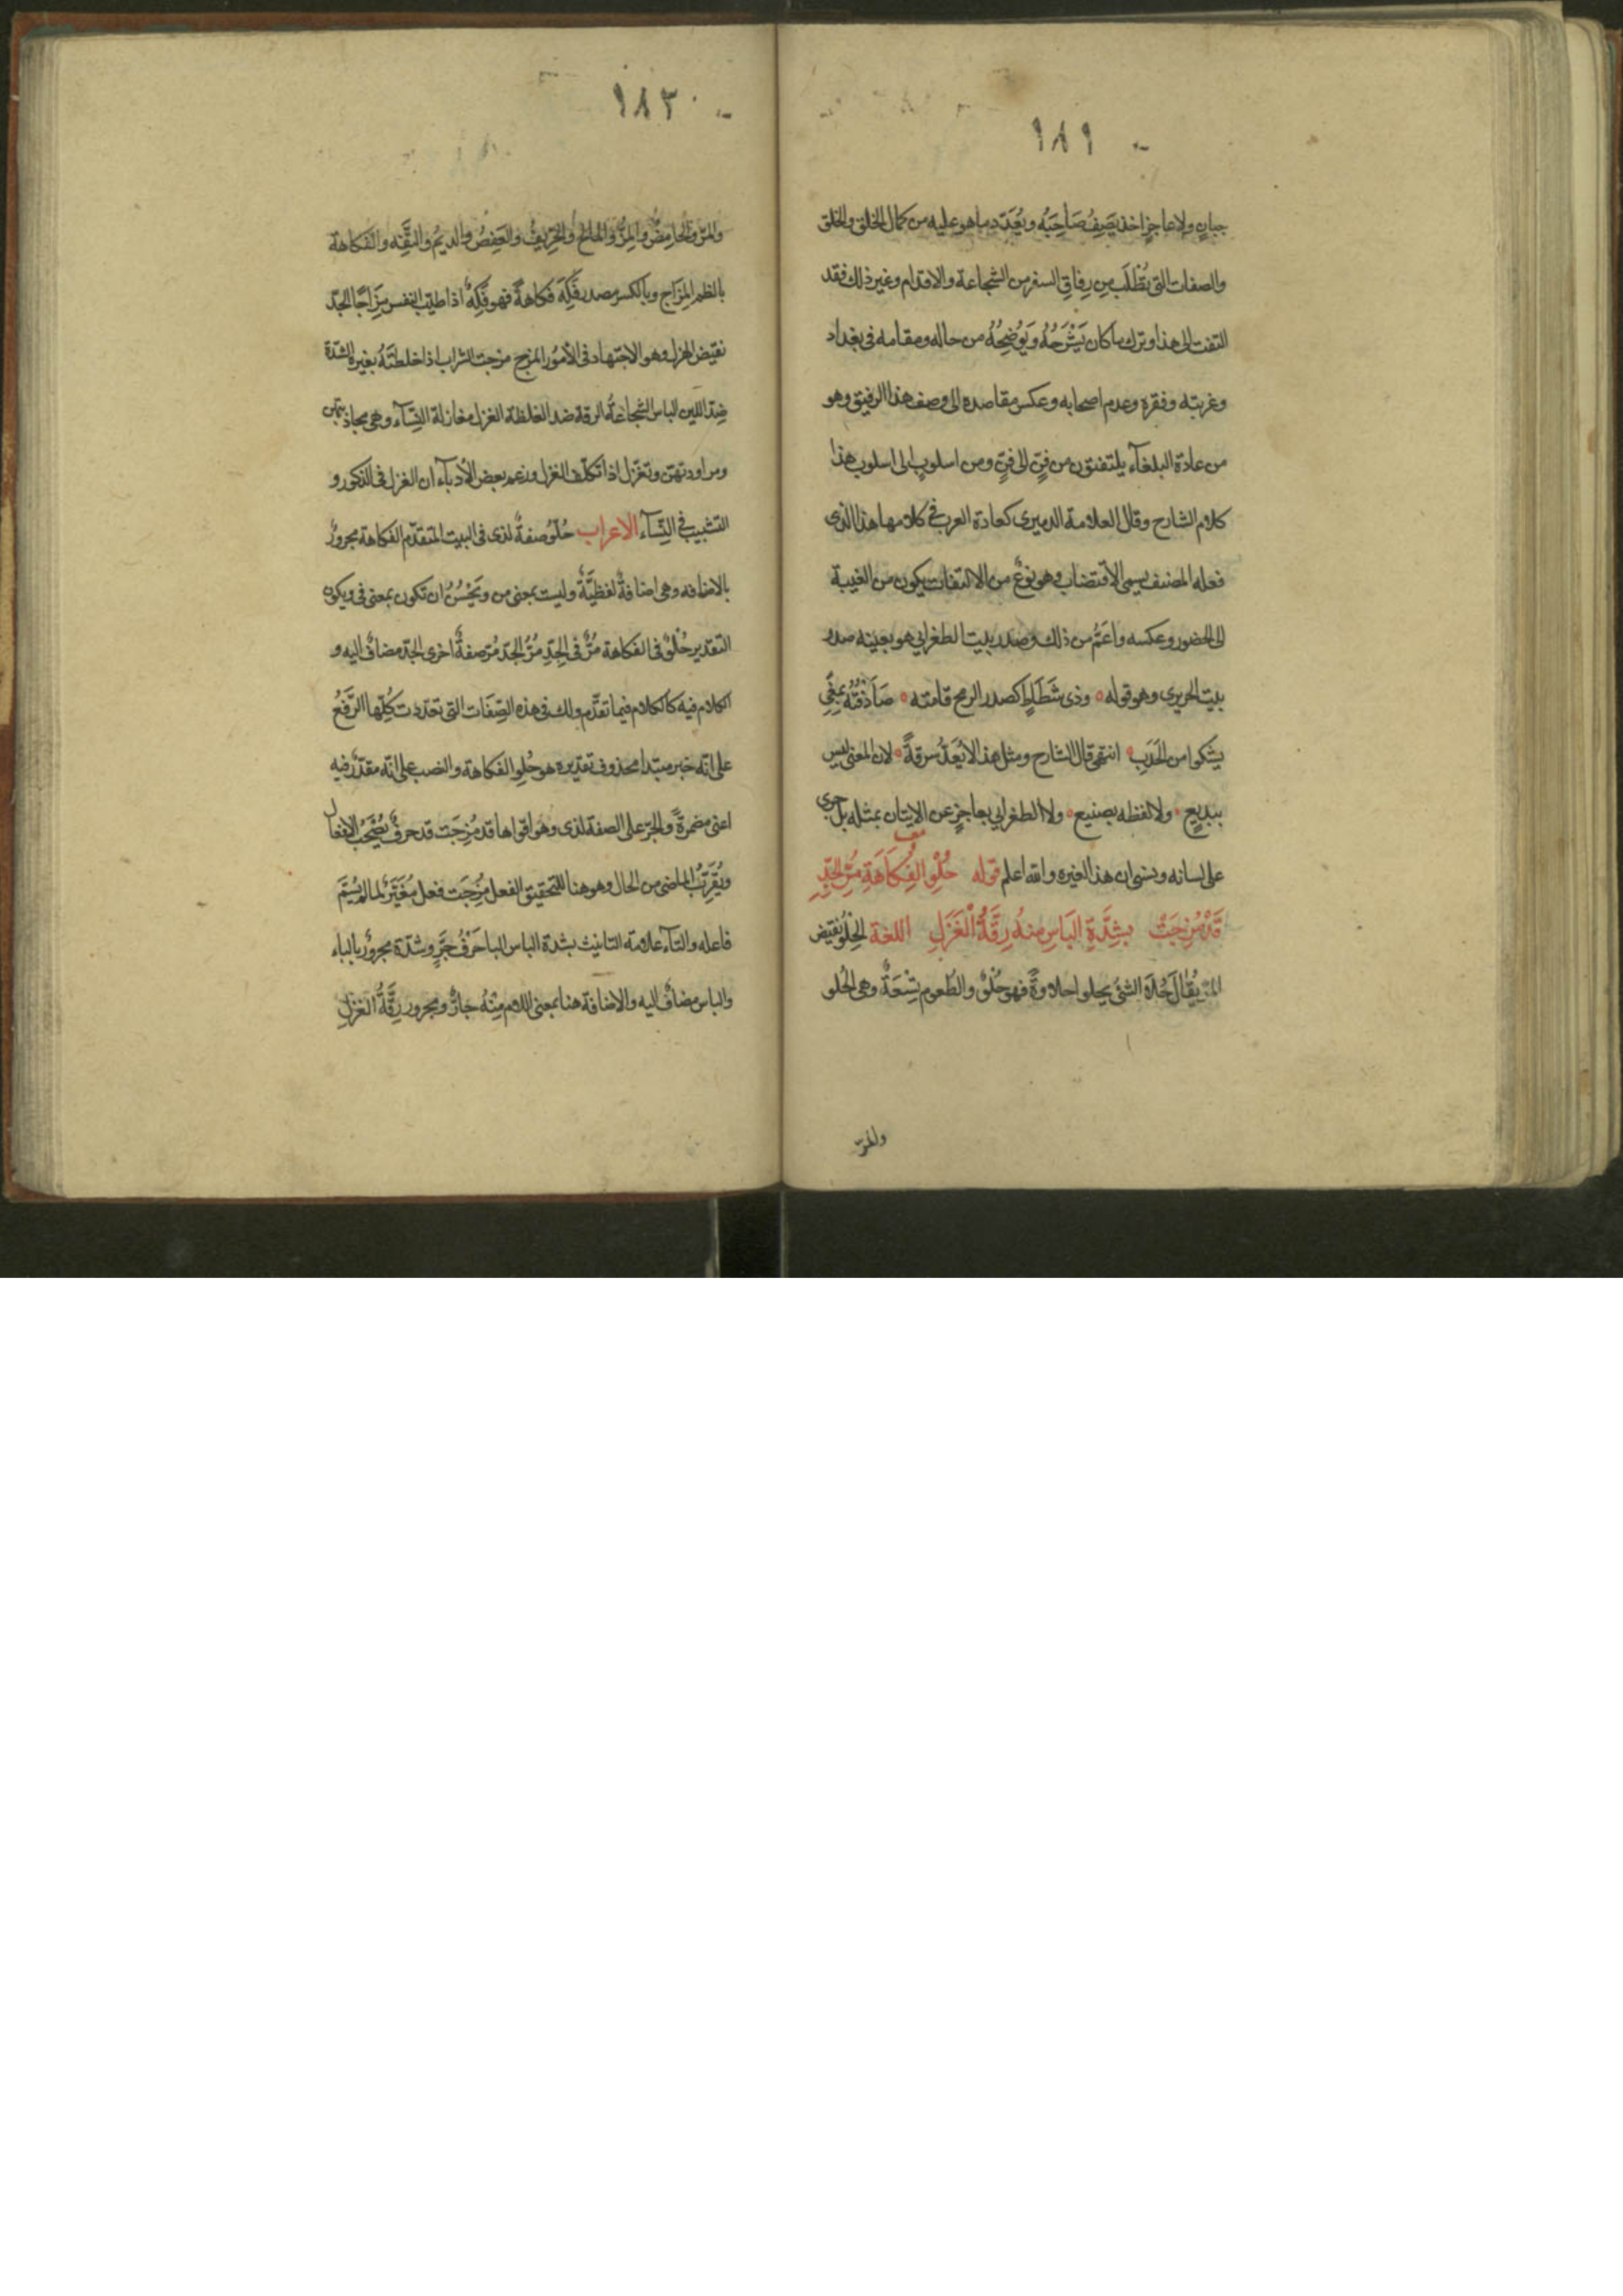 ١٨١
جبانٍ ولا عاجزٍ اخذ يَصِفُ صَاحِبَهُ ويُعَدّد ما هو عليه من كمال الخَلق والخُلق
والصفات التى تُطْلَب مِن رِفاقِ السفر من الشجاعة والاقدام وغير ذلك فقد
التفت الى هذا وترك ما كان يَشْرَحُهُ وَيَوُضِحُهُ من حاله ومقامه فى بغداد
وغربته وفقره وعدم اصحابه وعكس مقاصده الى وصف هذا الرفيق وهو
من عادة البلغآء يلتفتون من فنٍّ الى فنٍّ ومن اسلوبٍ الى اسلوب هذا
كلام الشارح وقال العلامة الدميرى كعادة العرب فى كلامها هذا الذى
فعله المصنف يسمى الاقتضاب وهو نوعٌ من الالتفات يكون من الغيبة
الى الحضور وعكسه واعَمُّ من ذلك وصدر بيت الطغرايي هو بعينه صدر
بيت الحريرى وهو قوله ٥ وذى شَطَاطٍ كصدر الرمح قامته ٥ صَادَفتُهُ بمِنًى
يشكوا من الحَدَبِ ٥ انتهى قال الشارح ومثل هذا لا يُعَدُّ سرقةً ٥ لان المعنى ليس
ببديعٍ ٥ ولا لفظه بصنيع ٥ ولا الطغرايي بعاجزٍ عن الاتيان بمثله بل جرى
على لسانه ونسى ان هذا لغيره والله اعلم قوله حُلْوِ الفِكَاهَةِ مُرِّ الجِدِّ
معا
قَدْ مُزِجَتْ بِشِدَّةِ البَاسِ منهُ رِقَّةُ الْغَزَلِ اللغة الحُلْوُ نقيض
المرّ يُقَالُ حَلاَ الشئُ يحلوا حلاوةً فهو حُلْوٌ والطعوم تِسْعَةٌ وهى الحُلو
والمرّ
١٨٢
والمرّ والحَامِضُ والمِزُّ والمَالحُ والحِرّيفُ والعَفِصُ والدسِمُ والتَفِّه والفكاهة
بالظم المِزَاح وبالكسر مصدر فَكِهَ فكاهةً فهو فَكِهٌ اذا طيب النفس مزّاحًا الجدّ
نقيض الهزل وهو الاجتهاد فى الأمُور المزج مزجت الشراب اذا خلطتَهُ بغيره الشدّة
ضِدّ اللين الباس الشجاعةُ الرقة ضد الغلظة الغزل مغازلة النِسآء وهى محادثتهن
ومراودتهنّ وتغزّل اذا تكلّف الغزل وزعم بعض الأدبآء ان الغزل فى الذكور و
التشبيب فى النِسآء الاعراب حُلْوُ صفةٌ لذى فى البيت المتقدّم الفكاهة مجرورٌ
بالاضافه وهى اضافةٌ لفظيَّةٌ وليست بمعنى من ويَحْسُنُ ان تكون بمعنى فى ويكون
التقدير حُلْوٌ فى الفكاهة مُرٌّ فى الجِدِّ مُرّ الجدّ مُرّ صفةٌ اخرى الجدّ مضافٌ اليه و
الكلام فيه كالكلام فيما تقدّم ولك فى هذه الصِّفَات التى تعدّدت كُلِّها الرَّفعُ
على انّه خبر مبتدا محذوف تقديره هو حُلو الفكاهة والنصب على انّه مقدّرٌ فيه
اعنى مضمرةً والجرّ على الصفة لذى وهو اقواها قد مُزِجَت قد حرفٌ يُصْحَبُ الافعال
ويُقَرّبُ الماضى من الحال وهو هنا لتحقيق الفعل مُزِجَت فعل مُغَيّرٌ لما لم يُسَمَّ
فاعله والتآء علامة التانيث بشدة الباس الباحَرْفُ جَرٍّ وشدّة مجرورٌ بالباء
والباس مضافٌ اليه والاضافة هنا بمعنى اللام مِنْهُ جارٌّ ومجرور رِقَّةُ الغزلِ